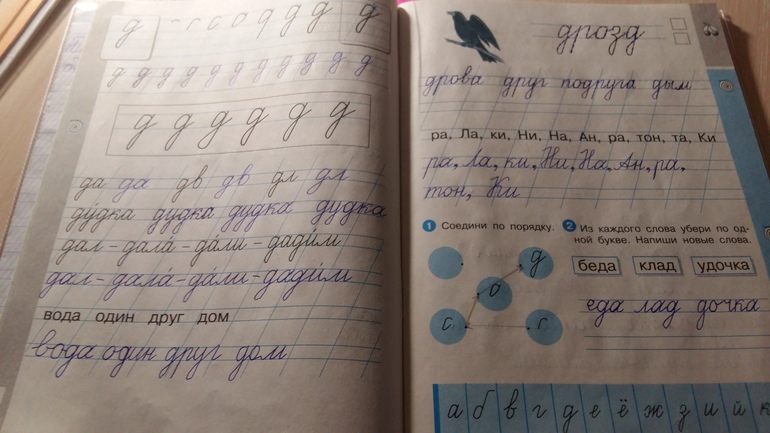 д с о д д д д
д д д д д д д д д д д
д д д д д д
да да дв дв дл дл
ду́дка дудка дудка дудка
дал – дала́ – да́ли – дади́м
дал – дала́ – да́ли – дади́м
вода один друг дом
вода один друг дом
дрозд
дрова друг подруга дым
ра, Ла, ки, Ни, На, Ан, ра, тон, та, Ки
ра, Ла, ки, Ни, На, Ан, ра,
тон, Ки
1 Соедини по порядку.
д
о
с г
2 Из каждого слова убери по од-
ной букве. Напиши новые слова.
беда клад удочка
еда лад дочка
а б в г д е ё ж з и й к